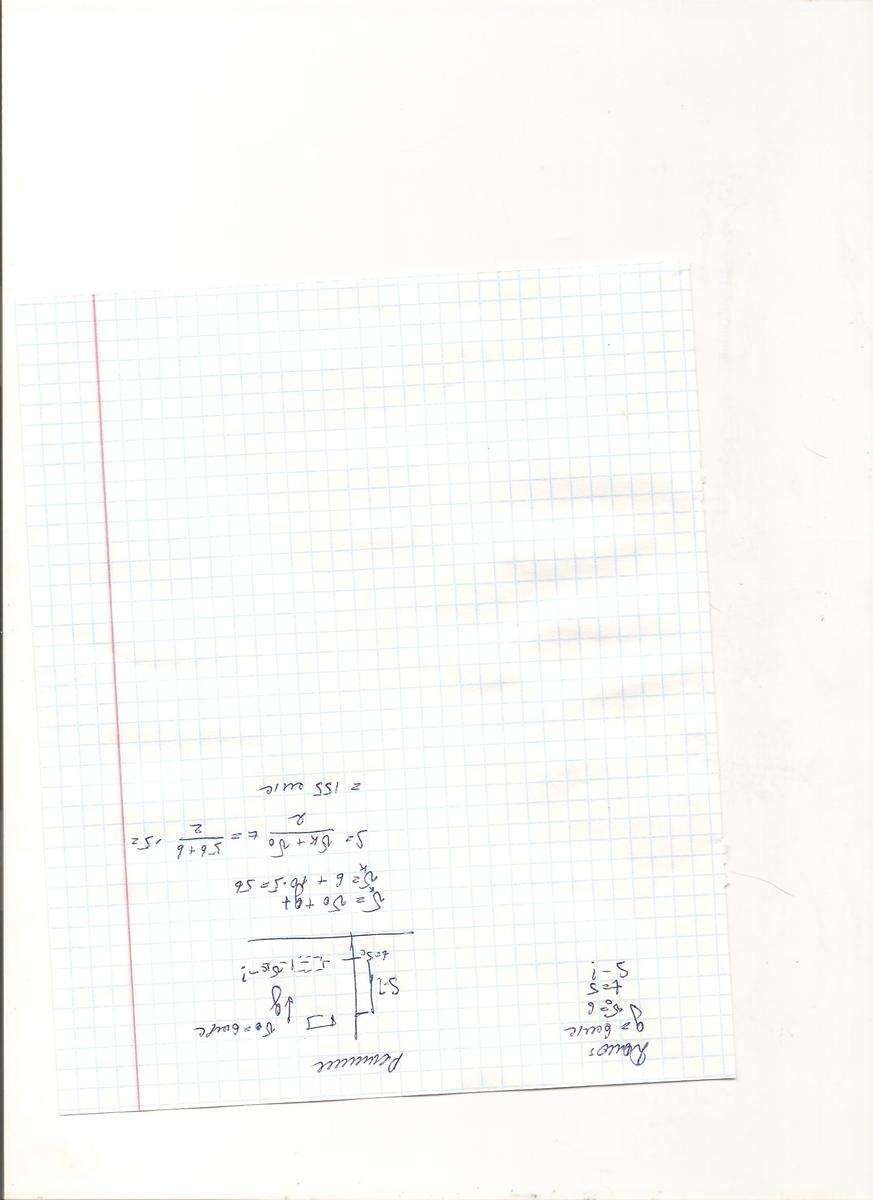 Дано:
g = 6 см/с
v₀ = 6
t = 5
S - ?
Решение
v₀ = 6 см/с
g
S-?
t = 5c
vк - ?
vк = v₀ + gt
vк = 6 + 10 · 5 = 56
S = vк + v₀ / 2 t = 56 + 6 / 2 · 5 =
= 155 см/с